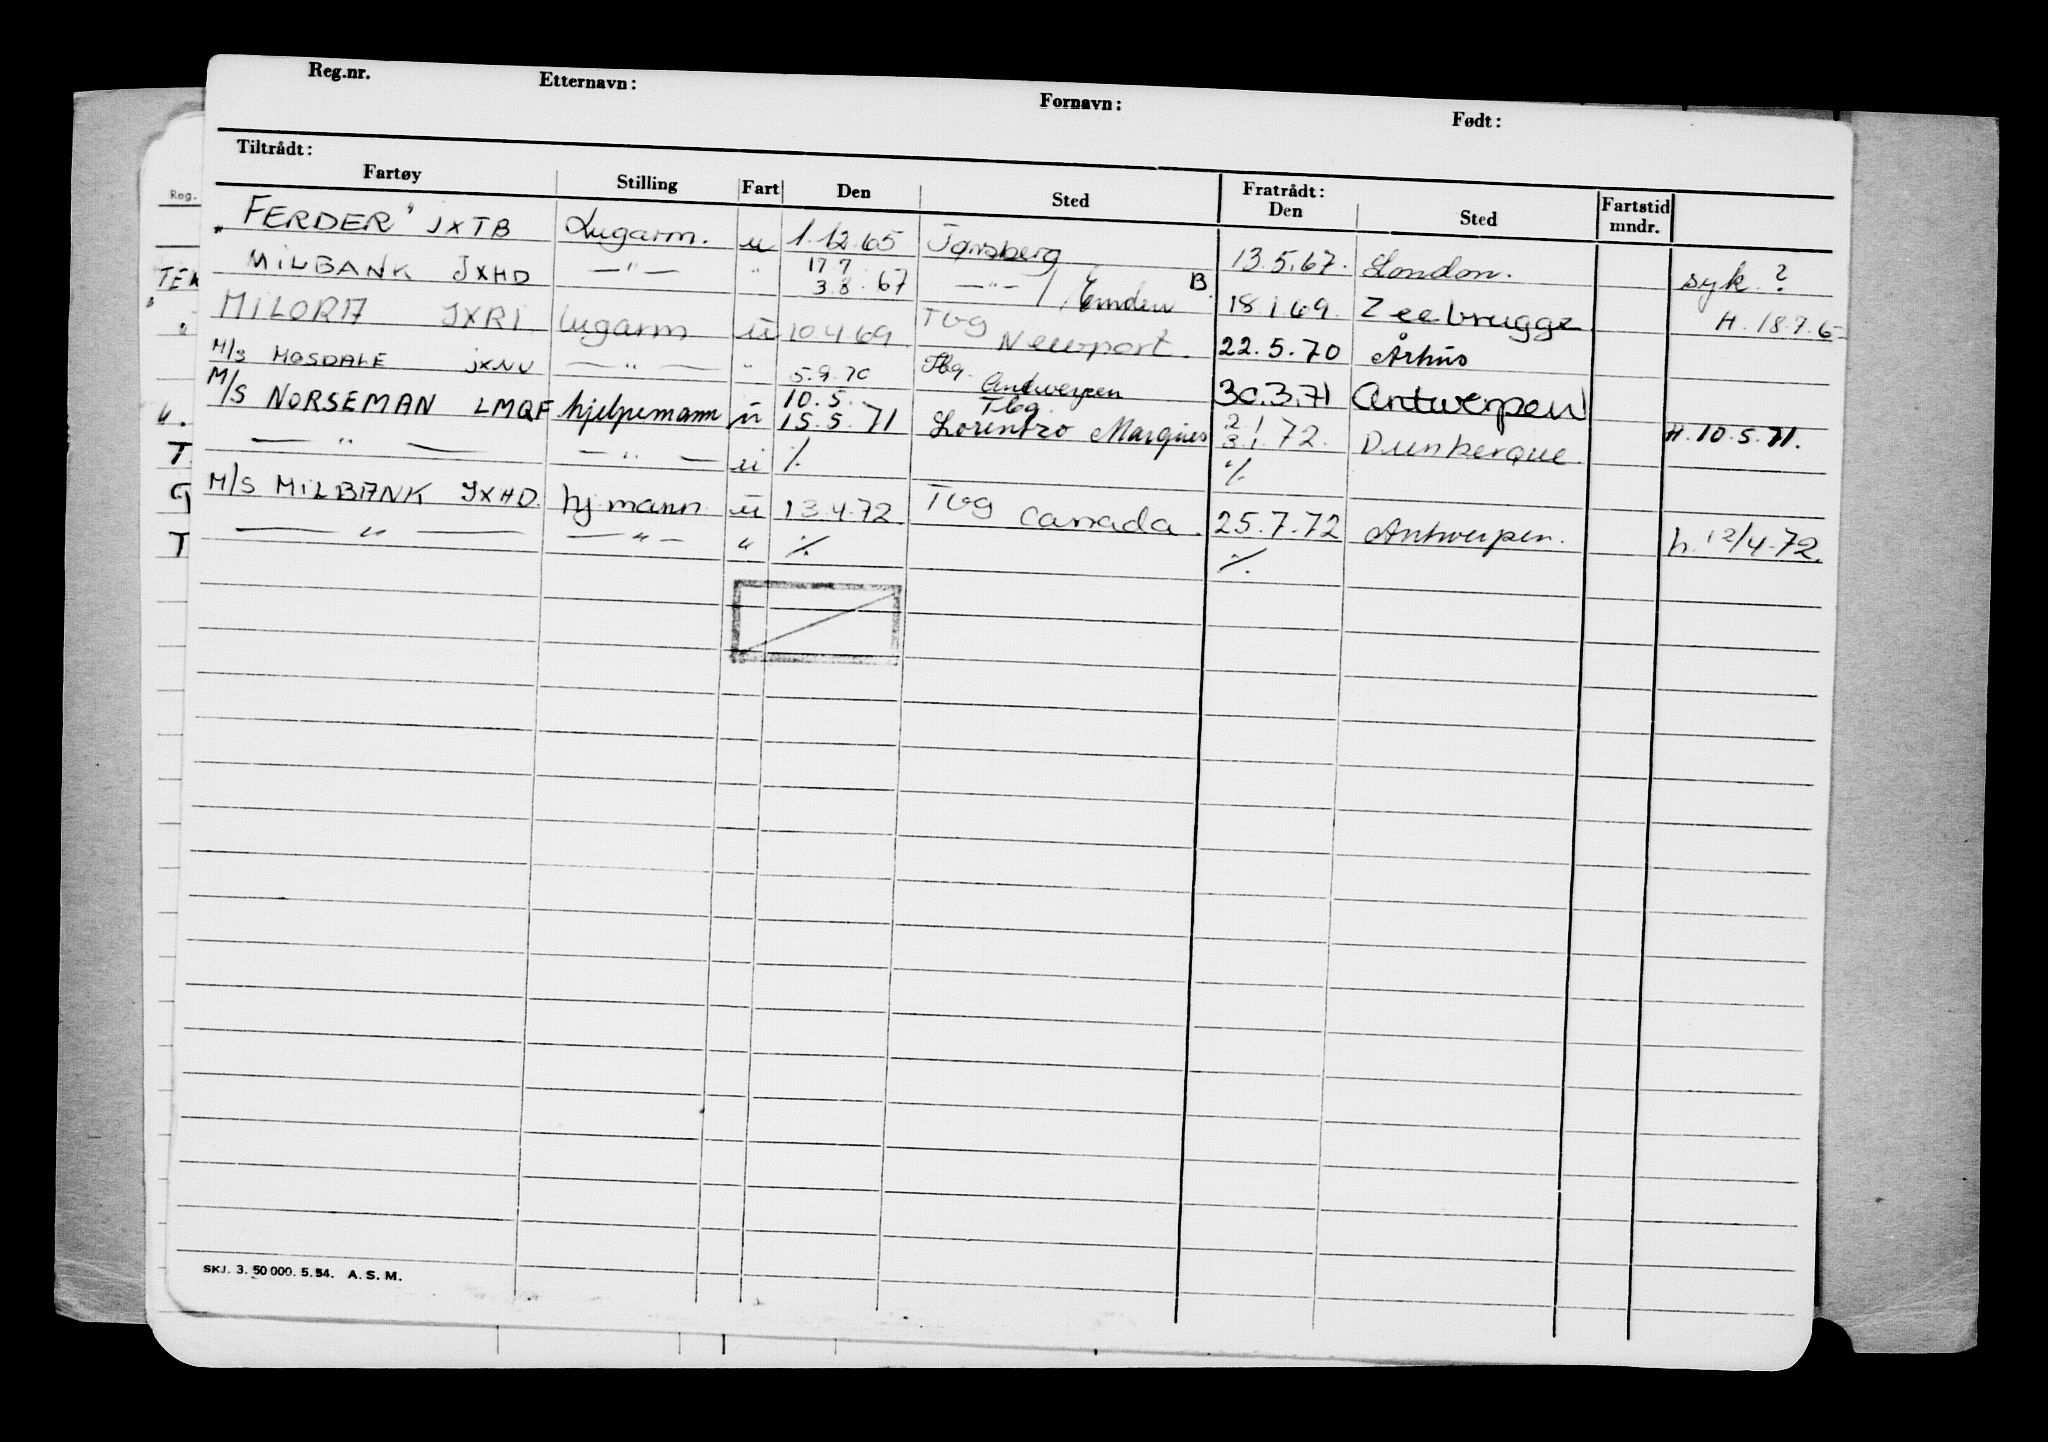 Reg.nr. Etternavn: Fornavn: Født:
Tiltrådt: Fratrådt:
Fartøy Stilling Fart Den Sted Den Sted Fartstid mndr.
"FERDER" JXTB Lugarm. u 1.12.65 Tønsberg 13.5.67. London. syk ?
MILBANK JXHD —"— " 17.7 3.8.67 —"— / Emden B. 18.1.69. Zeebrugge H. 18.7.6
MILORA JXRI lugarm u 10.4.69. Tbg Newport. 22.5.70 Århus
M/S MOSDALE JXNU —"— " 5.9.70 Tbg. Antwerpen 30.3.71 Antwerpen
M/S NORSEMAN LMQF hjelpemann u 10.5. 15.5.71 Tbg. Lorentzo Marques 2.1 3.1.72. Dunkerque. H. 10.5.71.
—"— —"— u ./. ./.
M/S MILBANK JXHD. hj.mann u 13.4.72 Tbg Canada. 25.7.72 Antwerpen. h. 12/4-72.
—"— —"— " ./. ./.
SKJ. 3. 50 000. 5.54. A. S. M.
Reg.
TEM
"
T
G
T